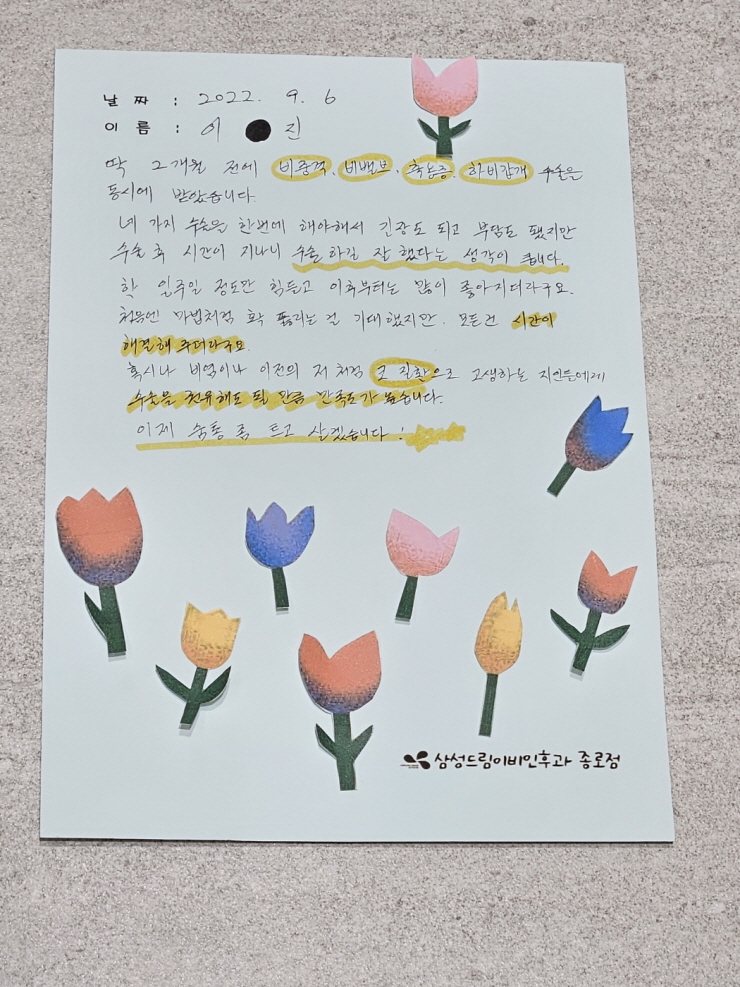 날 짜 : 2022. 9. 6
이 름 : 이 ● 진
딱 2개월 전에 비중격, 비밸브, 축농증, 하비갑개 수술을
동시에 받았습니다.
네 가지 수술을 한번에 해야해서 긴장도 되고 부담도 됐지만
수술 후 시간이 지나니 수술 하길 잘 했다는 생각이 듭니다.
한 일주일 정도만 힘들고 이후부터는 많이 좋아지더라구요.
처음엔 마법처럼 확 뚫리는 걸 기대했지만. 모든건 시간이
해결해 주더라구요.
혹시나 비염이나 이전의 저 처럼 코 질환으로 고생하는 지인들에게
수술을 권유해도 될 만큼 만족도가 높습니다.
이제 숨통 좀 트고 살겠습니다!
삼성드림이비인후과 종로점